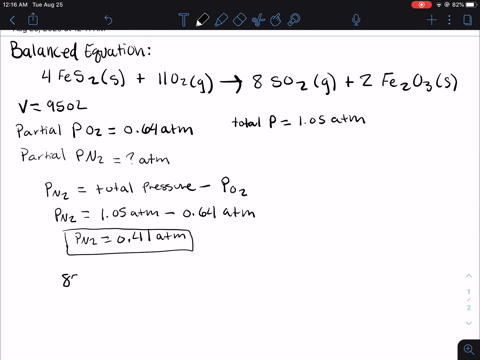 12:16 AM Tue Aug 25
82%
Balanced Equation:
4 FeS2(s) + 11O2(g) → 8 SO2(g) + 2 Fe2O3(s)
V = 950L
Partial PO2 = 0.64 atm
total P = 1.05 atm
Partial PN2 = ? atm
PN2 = total pressure - PO2
PN2 = 1.05 atm - 0.64 atm
PN2 = 0.41 atm
8
1
/
2